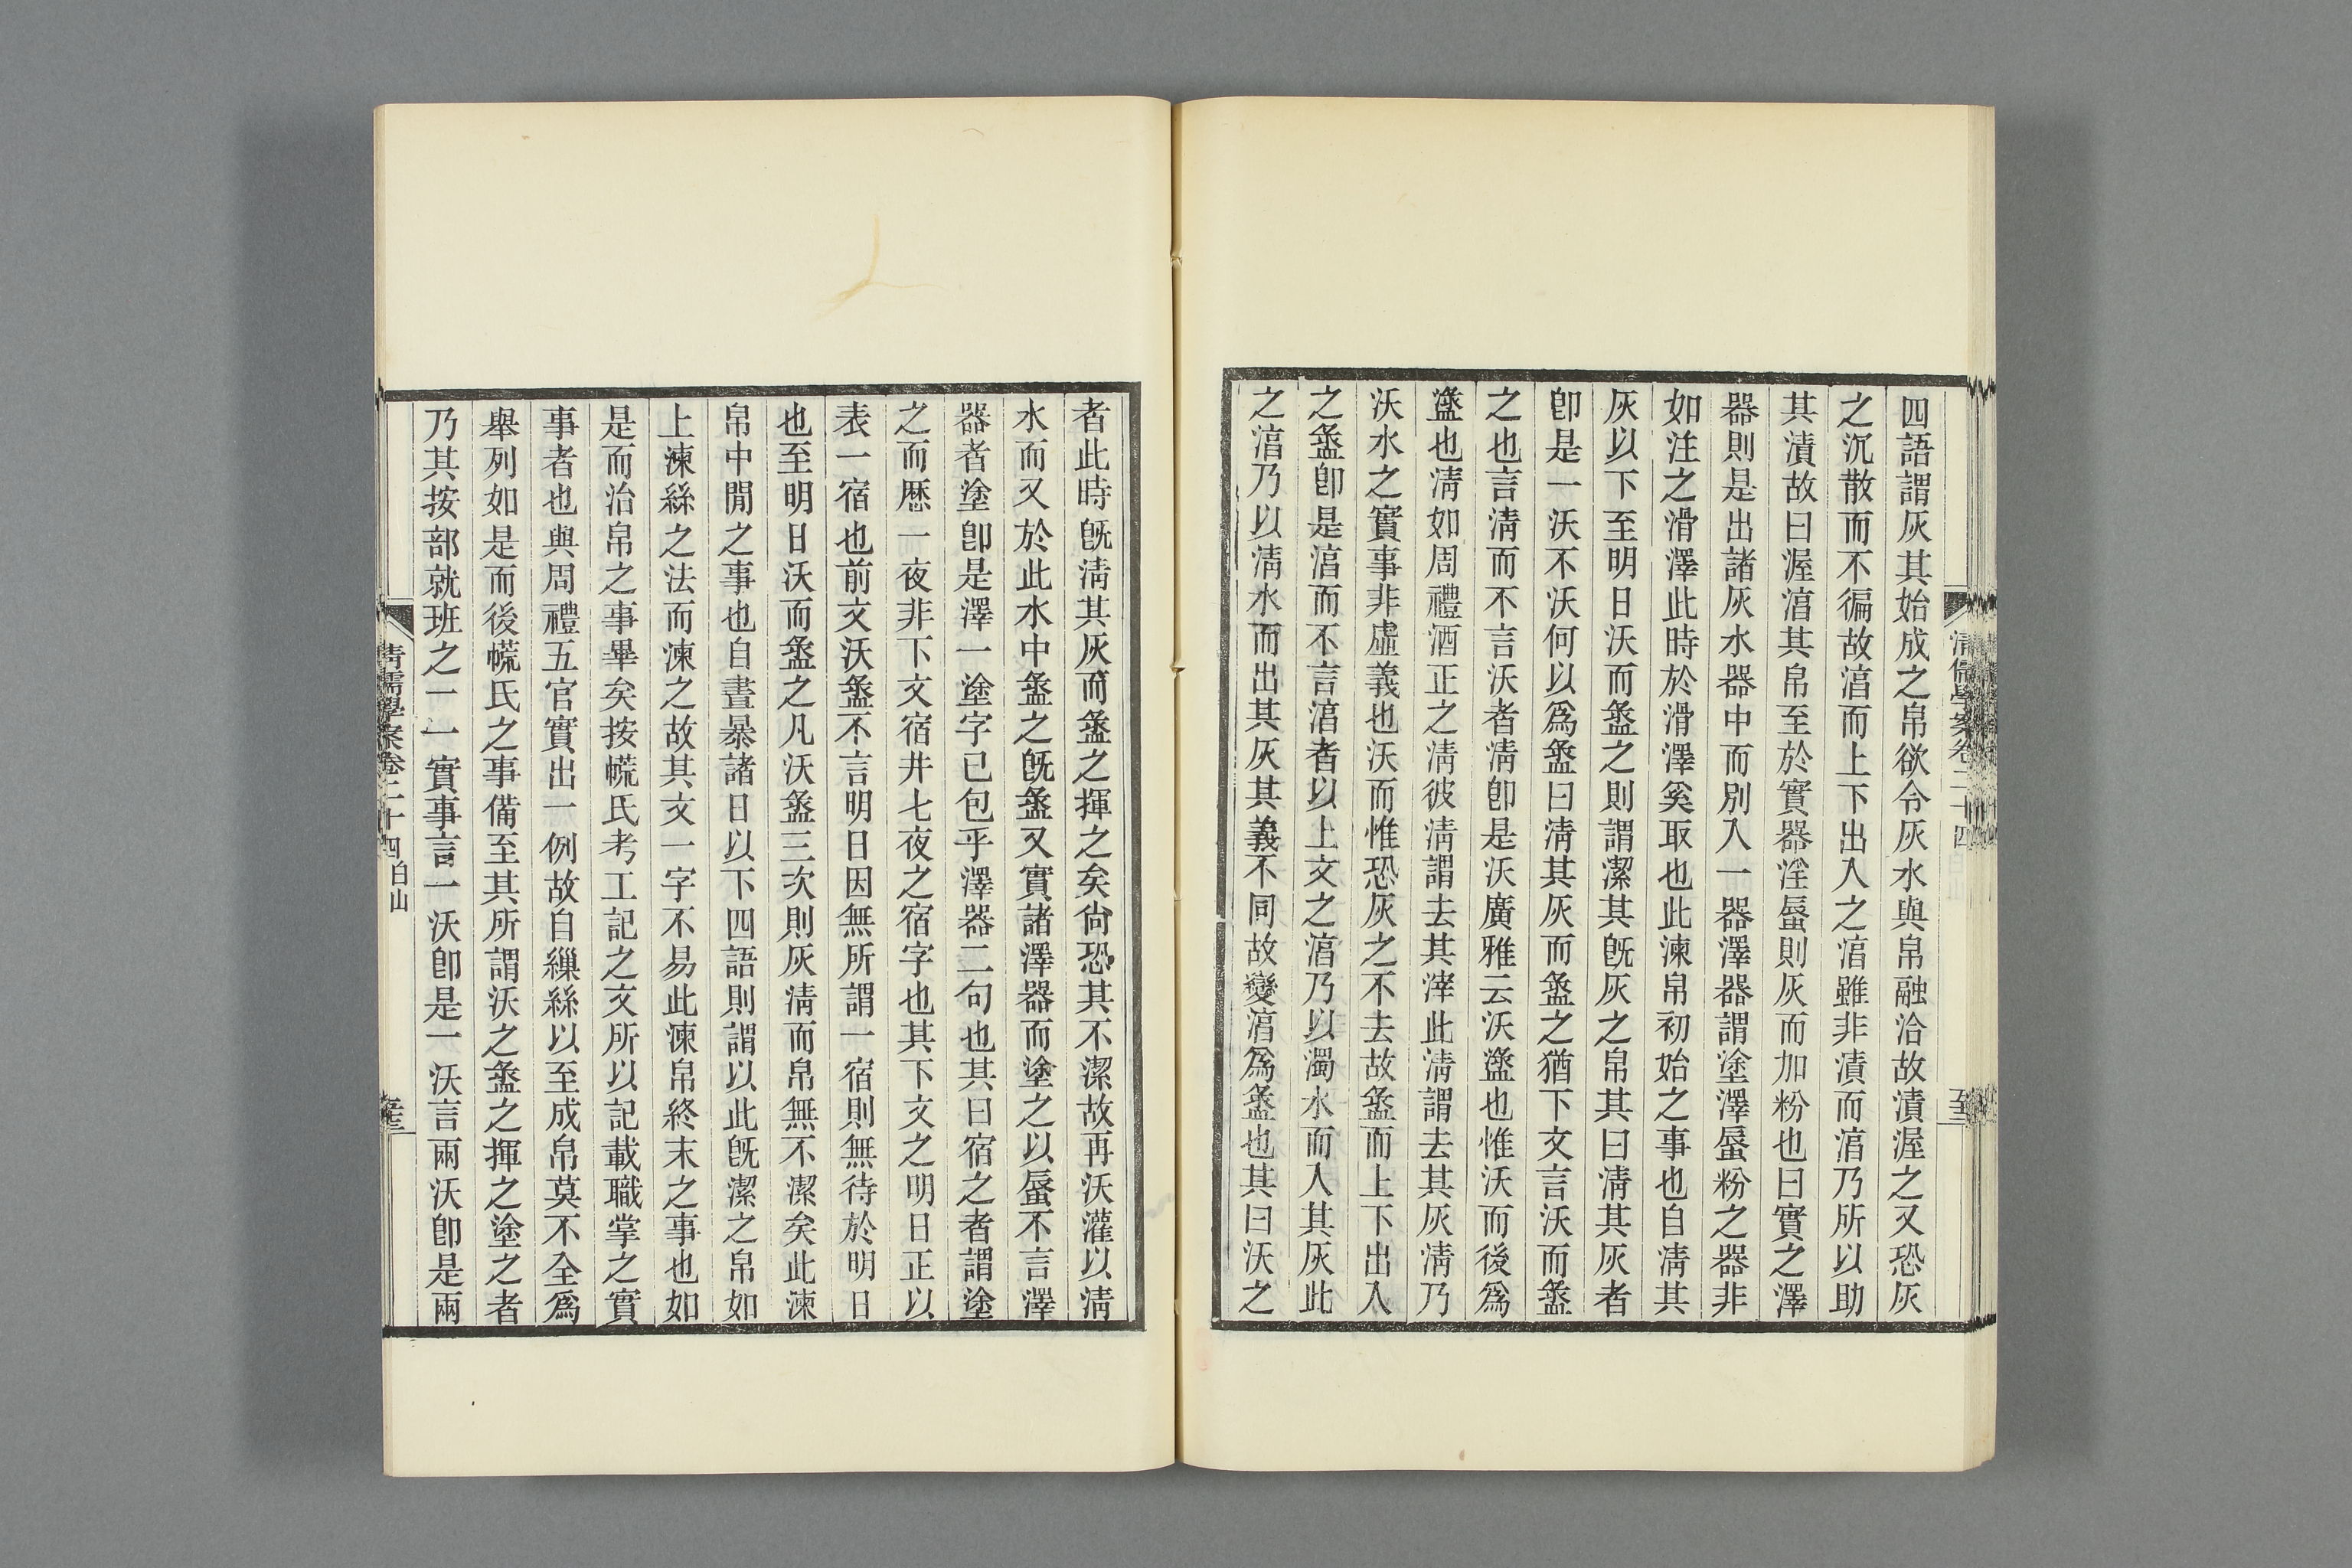 四語謂灰其始成之帛欲令灰水與帛融洽故漬渥之又恐灰
之沉散而不徧故湻而上下出入之湻雖非漬而湻乃所以助
其漬故曰渥湻其帛至於實器淫蜃則灰而加粉也曰實之澤
器則是出諸灰水器中而別入一器澤器謂塗澤蜃粉之器非
如注之滑澤此時於滑澤奚取也此湅帛初始之事也自淸其
灰以下至明日沃而盝之則謂潔其旣灰之帛其曰淸其灰者
卽是一沃不沃何以爲盝曰淸其灰而盝之猶下文言沃而盝
之也言淸而不言沃者淸卽是沃廣雅云沃盪也惟沃而後爲
盪也淸如周禮酒正之淸彼淸謂去其滓此淸謂去其灰淸乃
沃水之實事非虛義也沃而惟恐灰之不去故盝而上下出入
之盝卽是湻而不言湻者以上文之湻乃以濁水而入其灰此
之湻乃以淸水而出其灰其義不同故變湻爲盝也其曰沃之
者此時旣淸其灰而盝之揮之矣尙恐其不潔故再沃灌以淸
水而又於此水中盝之旣盝又實諸澤器而塗之以蜃不言澤
器者塗卽是澤一塗字已包乎澤器二句也其曰宿之者謂塗
之而厯一夜非下文宿井七夜之宿字也其下文之明日正以
表一宿也前文沃盝不言明日因無所謂一宿則無待於明日
也至明日沃而盝之凡沃盝三次則灰淸而帛無不潔矣此湅
帛中閒之事也自晝暴諸日以下四語則謂以此旣潔之帛如
上湅絲之法而湅之故其文一字不易此湅帛終末之事也如
是而治帛之事畢矣按㡛氏考工記之文所以記載職掌之實
事者也與周禮五官實出一例故自繅絲以至成帛莫不全爲
舉列如是而後㡛氏之事備至其所謂沃之盝之揮之塗之者
乃其按部就班之一一實事言一沃卽是一沃言兩沃卽是兩
清儒學案卷二十四 白山